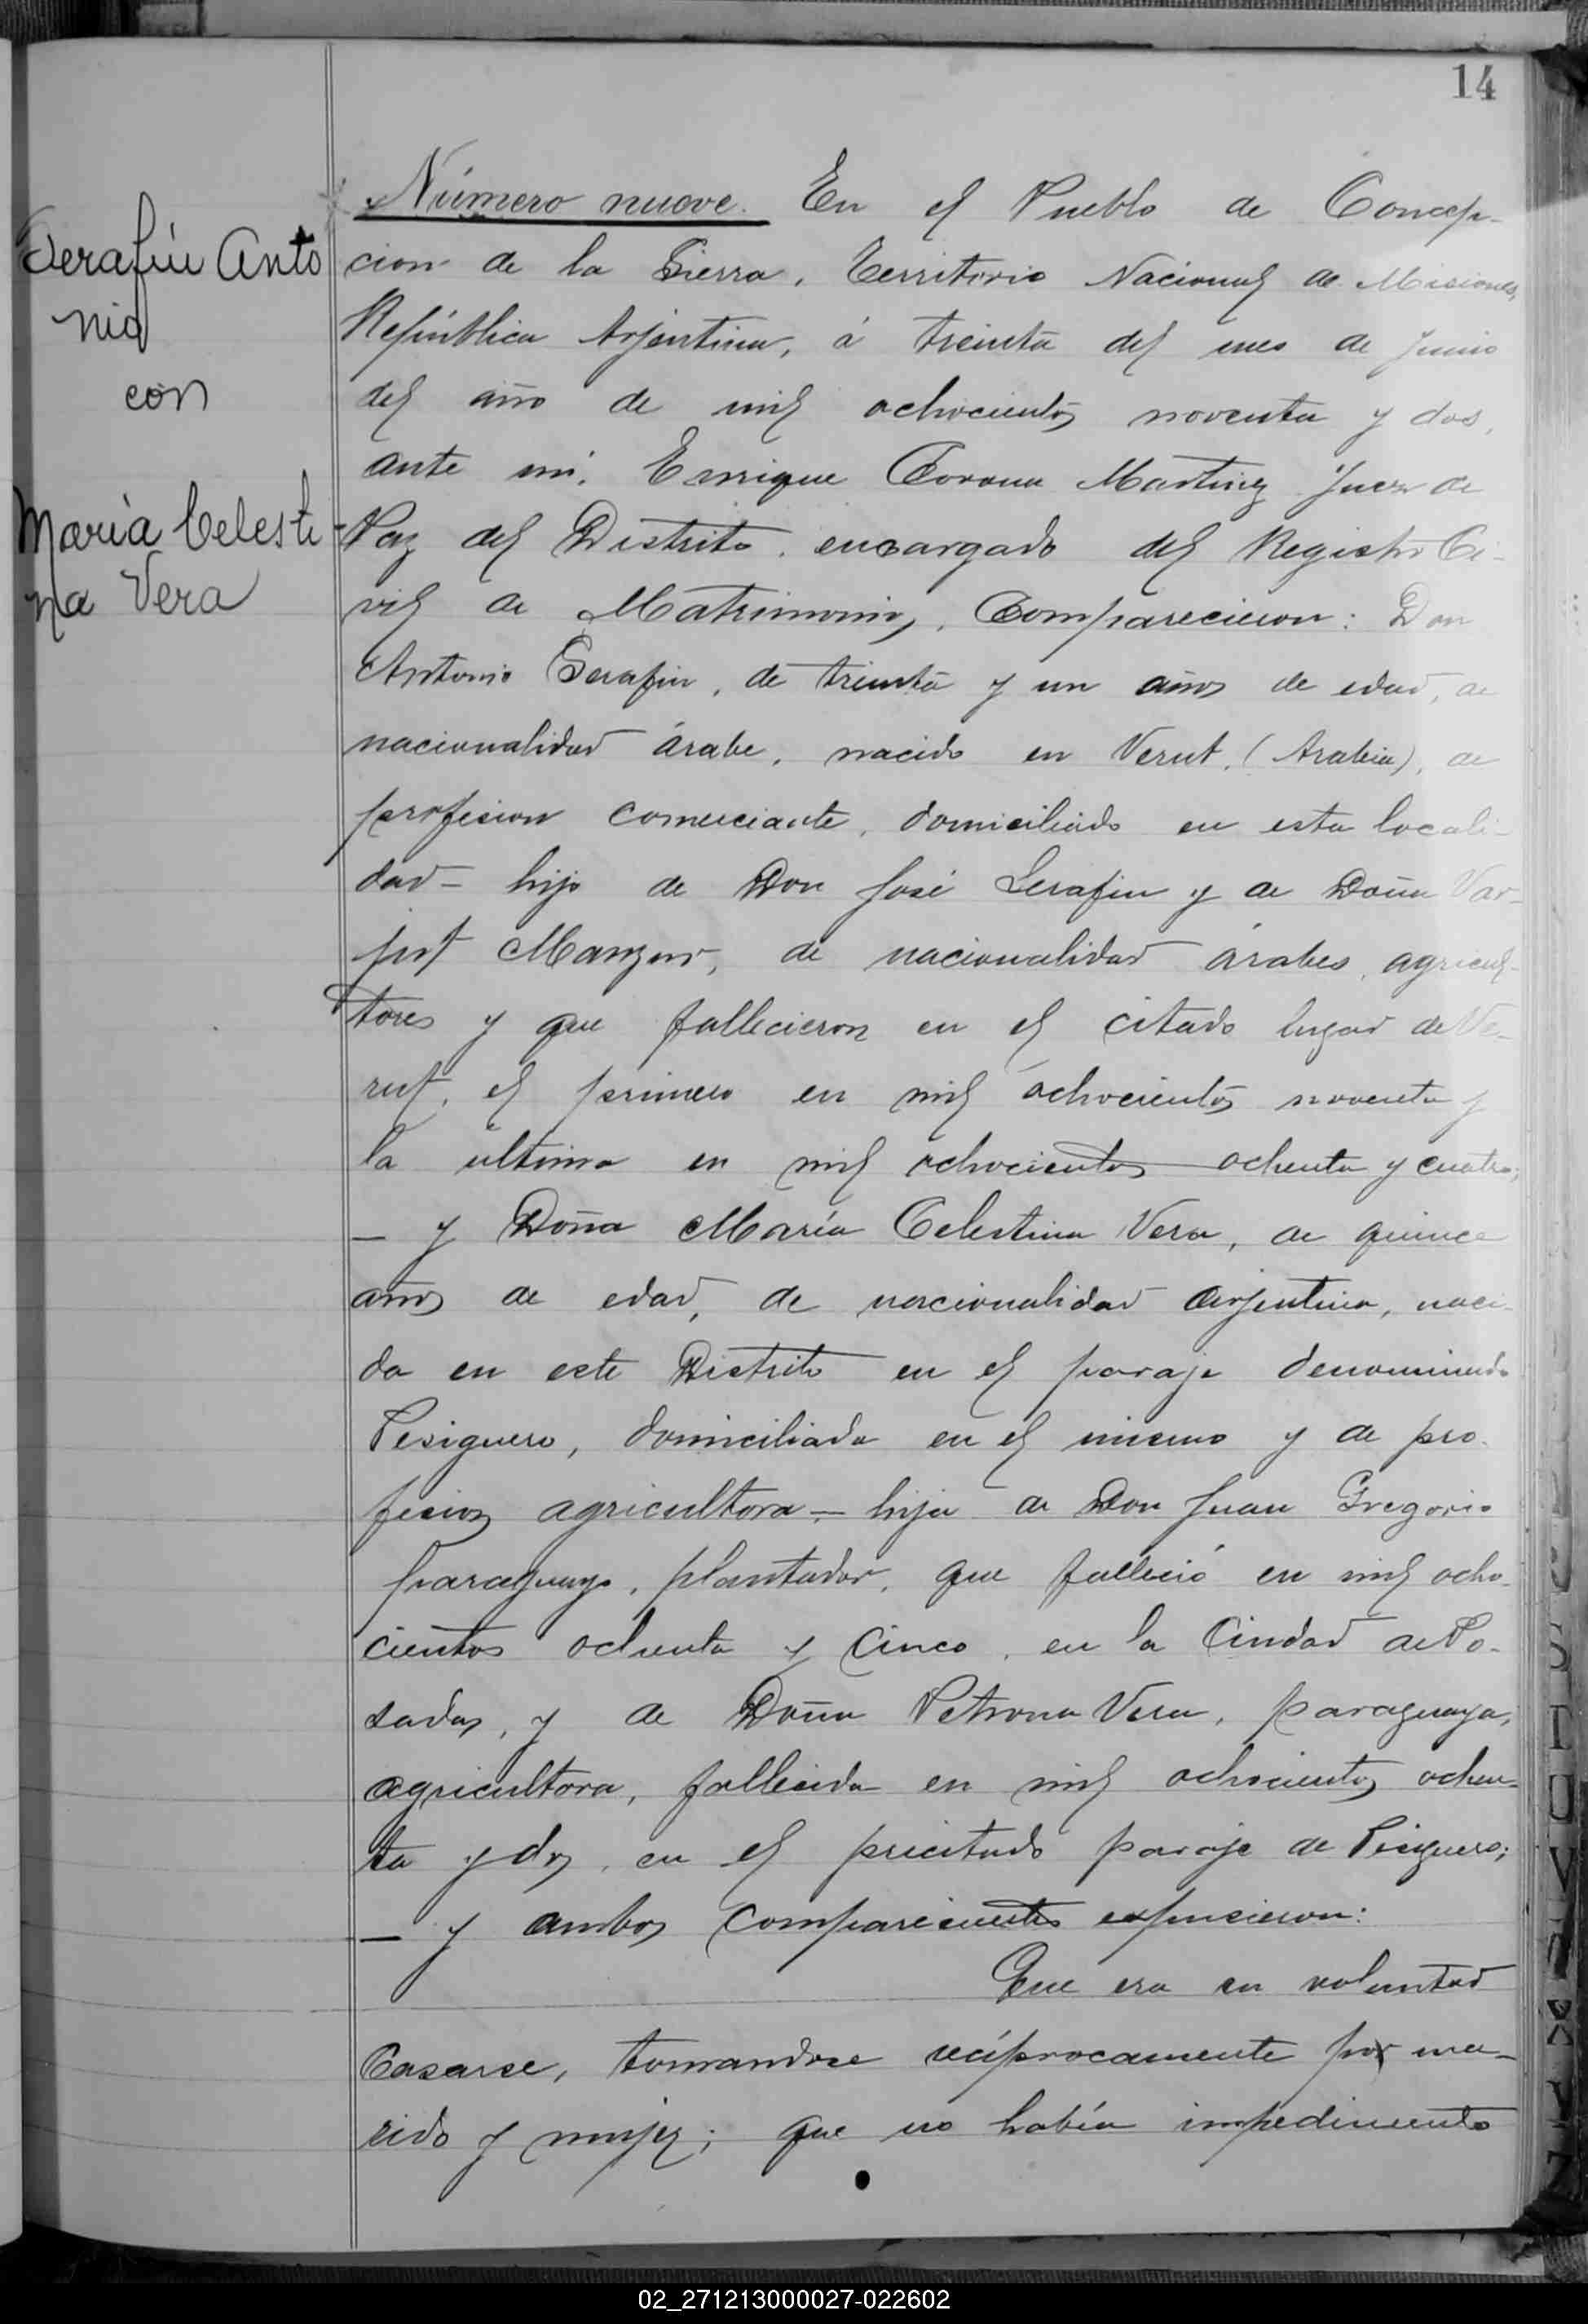 14
Número nueve. En el Pueblo de Concep-
cion de la Sierra, Territorio Nacional de Misiones,
República Arjentina, á treinta del mes de Junio
del año de mil ochocientos noventa y dos,
ante mí, Enrique Corona Martinez Juez de
Paz del Distrito, encargado del Registro Ci-
vil de Matrimonios, Comparecieron: Don
Antonio Serafin, de treinta y un años de edad, de
nacionalidad árabe, nacido en Verut, (Arabia), de
profesion comerciante, domiciliado en esta locali-
dad - hijo de Don José Serafin y de Doña
Manzur, de nacionalidad árabes, agricul-
tores y que fallecieron en el citado lugar de Ve-
rut, el primero en mil ochocientos noventa y
la ultima en mil ochocientos ochenta y cuatro;
— y Doña María Celestina Vera, de quince
años de edad, de nacionalidad arjentina, naci-
da en este Distrito en el paraje denominado
Pesiguero, domiciliada en el mismo y de pro-
fesion agricultora - hija de Don Juan Gregorio
paraguayo, plantador, que falleció en mil ocho-
cientos ochenta y cinco, en la Ciudad de Po-
sadas, y de Doña Petrona Vera, paraguaya,
agricultora, fallecida en mil ochocientos ochen-
ta y dos, en el precitado paraje de Pesiguero;
— y ambos comparecientes expusieron:
Que era su voluntad
Casarse, tomandose recíprocamente por ma-
rido y mujer; que no había impedimento
Serafin Anto
nio
con
María Celesti-
na Vera
S
T
U
V
X
Y
Z
02_271213000027-022602